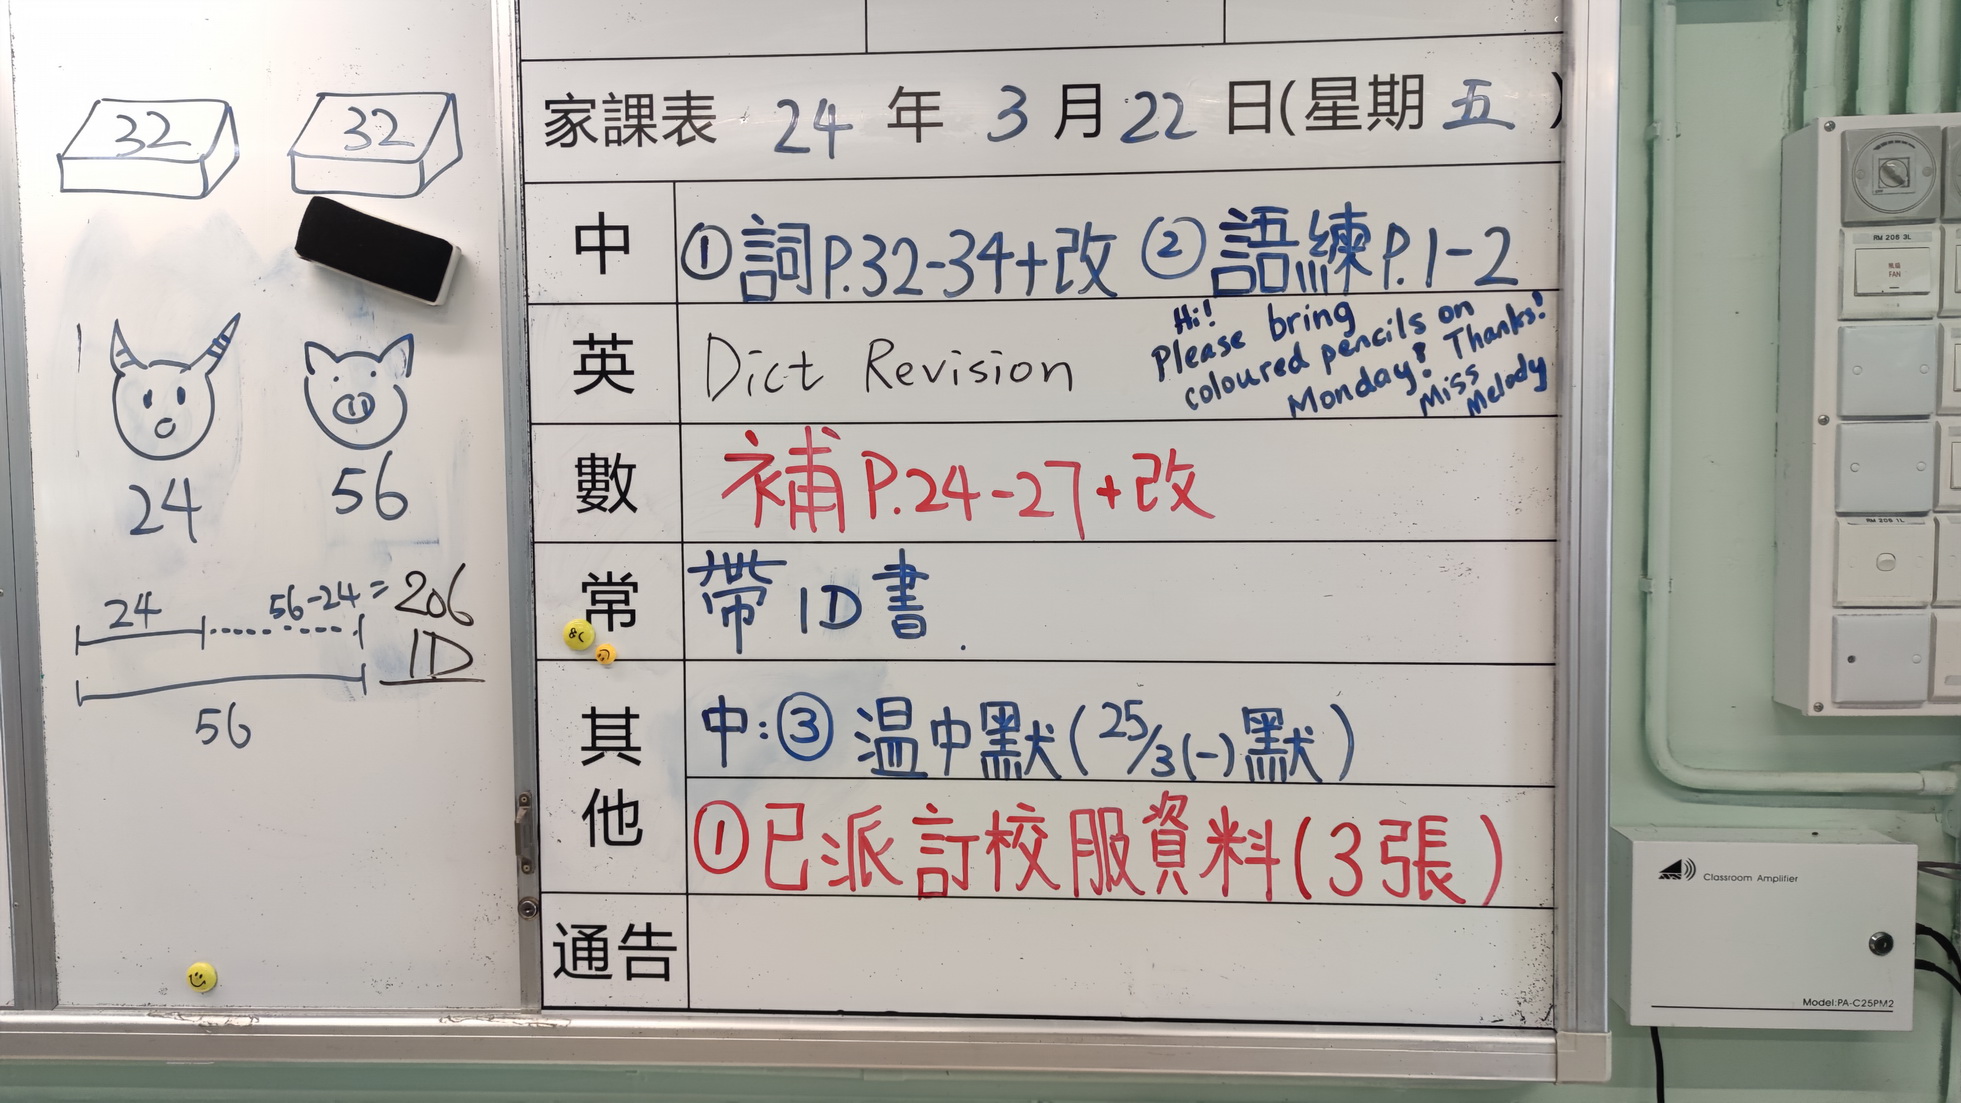 32 32
24 56
24 56-24= 206
1D
56
家課表 24 年 3 月 22 日(星期 五 )
中 ①詞P.32-34+改 ②語練P.1-2
英 Dict Revision
Hi!
Please bring
coloured pencils on
Monday! Thanks!
Miss
Melody
數 補P.24-27+改
常 帶1D書.
其他 中:③ 温中默(25/3(一)默)
①已派訂校服資料(3張)
通告
RM 206 3L
FAN
RM 206 1L
Classroom Amplifier
Model:PA-C25PM2